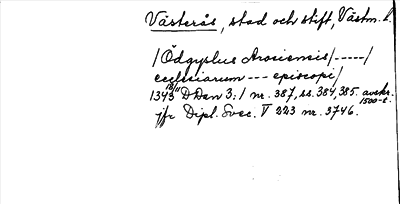 Västerås, stad och stift, Västm. l.
/Ödgyslus Arosiensis/-----/
ecclesiarum --- episcopi/
1343 18/11 DDan 3:1 nr. 387, ss. 384, 385. avskr. 1500-t.
jfr Dipl. Svec. V 223 nr. 3746.